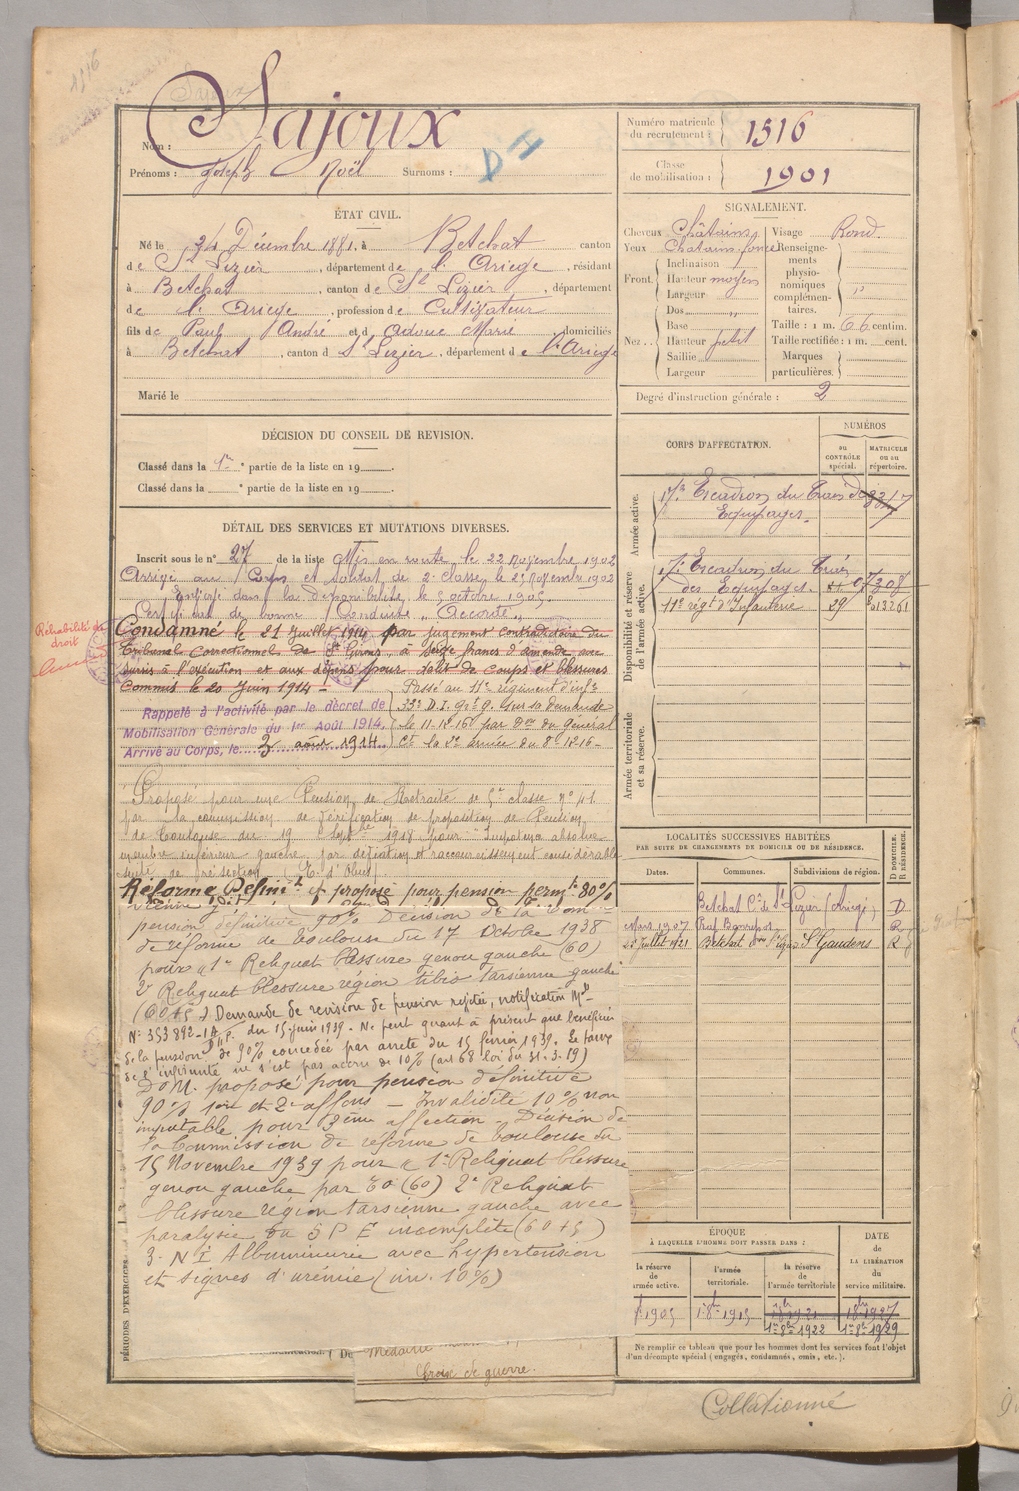 1516
Sajoux
Nom :
Sajoux
Prénoms : Joseph Noël Surnoms :
D I
ÉTAT CIVIL.
Né le 24 Décembre 1881, à Betchat canton
de St Lizier, département de l'Ariège, résidant
à Betchat, canton de St Lizier, département
de l'Ariège, profession de Cultivateur
fils de Paul André et d domiciliés
à Betchat, canton d St Lizier, département de l'Ariège
Marié le
DÉCISION DU CONSEIL DE REVISION.
Classé dans la 1re partie de la liste en 19 .
Classé dans la e partie de la liste en 19 .
DÉTAIL DES SERVICES ET MUTATIONS DIVERSES.
Inscrit sous le n° 27 de la liste Mis en route le 22 novembre 1902
Arrivé au Corps et soldat de 2e classe le 2 novembre 1902
Envoyé dans la disponibilité le 5 octobre 1905.
Certificat de bonne Conduite "Accordé"
Réhabilité de
droit
Condamné le 21 Juillet 1914 par jugement contradictoire du
Tribunal Correctionnel de St Girons, à seize francs d'amende avec
sursis à l'exécution et aux dépens pour délit de coups et blessures
Commis le 20 Juin 1914 –
Passé au 11e régiment d'infie
Rappelé à l'activité par le décret de
33e D.I. sur sa demande
Mobilisation Générale du 1er Août 1914.
le 11-12-16 par Don du général
Arrivé au Corps, le 3 août 1914.
Ct la 2e armée du 8-12-16 –
Proposé pour une Pension de Retraite de 5e classe n° 41
par la commission de vérification de proposition de Pension
de Toulouse du 19 Septbre 1918 pour "Impotence absolue
membre inférieur gauche par déviation et raccourcissement considérable
suite de résection (E. d'Obus)
Réforme Définitve et proposé pour pension permte 80%
pension définitive 90% Décision de la Com
de réforme de Toulouse du 17 Octobre 1938
pour "1° Reliquat blessure genou gauche (60)
2° Reliquat blessure région tibio tarsienne gauche
(60+5) Demande de revision de pension rejetée, notification Mle
N° 353892-1A P. du 15 juin 1939. Ne peut quant à présent que bénéficier
de la pension de 90% concedée par arrêté du 15 février 1939. Le taux
de l'infirmité ne s'est pas accru de 10% (art 68 loi du 31.3.19)
DoM. proposé pour pension définitive
90% 1ère et 2e affons – Invalidité 10% non
imputable pour 3ème affection – Décision de
la Commission de réforme de Toulouse du
15 Novembre 1939 pour "1° Reliquat blessure
genou gauche par (60) 2° Reliquat
blessure région tarsienne gauche avec
paralysie du S P E incomplète (60+5)
3° N I Albuminurie avec hypertension
et signes d'urémie (inv. 10%)
PÉRIODES D'EXERCICES.
Médaille
Croix de guerre.
Numéro matricule
du recrutement : 1516
Classe
de mobilisation : 1901
SIGNALEMENT.
Cheveux Châtains Visage Rond
Yeux Chatain foncé Renseigne-
ments
physio-
nomiques
complémen-
taires. "
Front. Inclinaison
Hauteur moyen
Largeur
Nez. Dos "
Base
Hauteur petit
Saillie
Largeur
Taille : 1 m. 66 centim.
Taille rectifiée : 1 m. cent.
Marques
particulières.
Degré d'instruction générale : 2
CORPS D'AFFECTATION.
NUMÉROS
au
CONTRÔLE
spécial.
MATRICULE
ou au
répertoire.
Armée active.
17e Escadron du Train des 3317
Equipages.
Disponibilité et réserve
de l'armée active.
17e Escadron du Train
des Equipages 07308
11e régt d'Infanterie 29 013261
Armée territoriale
et sa réserve.
LOCALITÉS SUCCESSIVES HABITÉES
PAR SUITE DE CHANGEMENTS DE DOMICILE OU DE RÉSIDENCE.
D DOMICILE.
R RÉSIDENCE.
Dates. Communes. Subdivisions de région.
Betchat Con de St Lizier (Ariège) D
Mars 1907 R
Juillet 1921 Betchat St Gaudens R
ÉPOQUE
À LAQUELLE L'HOMME DOIT PASSER DANS :
DATE
de
LA LIBÉRATION
du
service militaire.
la réserve
de
l'armée active.
l'armée
territoriale.
la réserve
de
l'armée territoriale
1905 1-8bre 1915 1-8bre 1921 1-8bre 1927
1er-8bre 1922 1er-8bre 1929
Ne remplir ce tableau que pour les hommes dont les services font l'objet
d'un décompte spécial (engagés, condamnés, omis, etc.).
Collationné